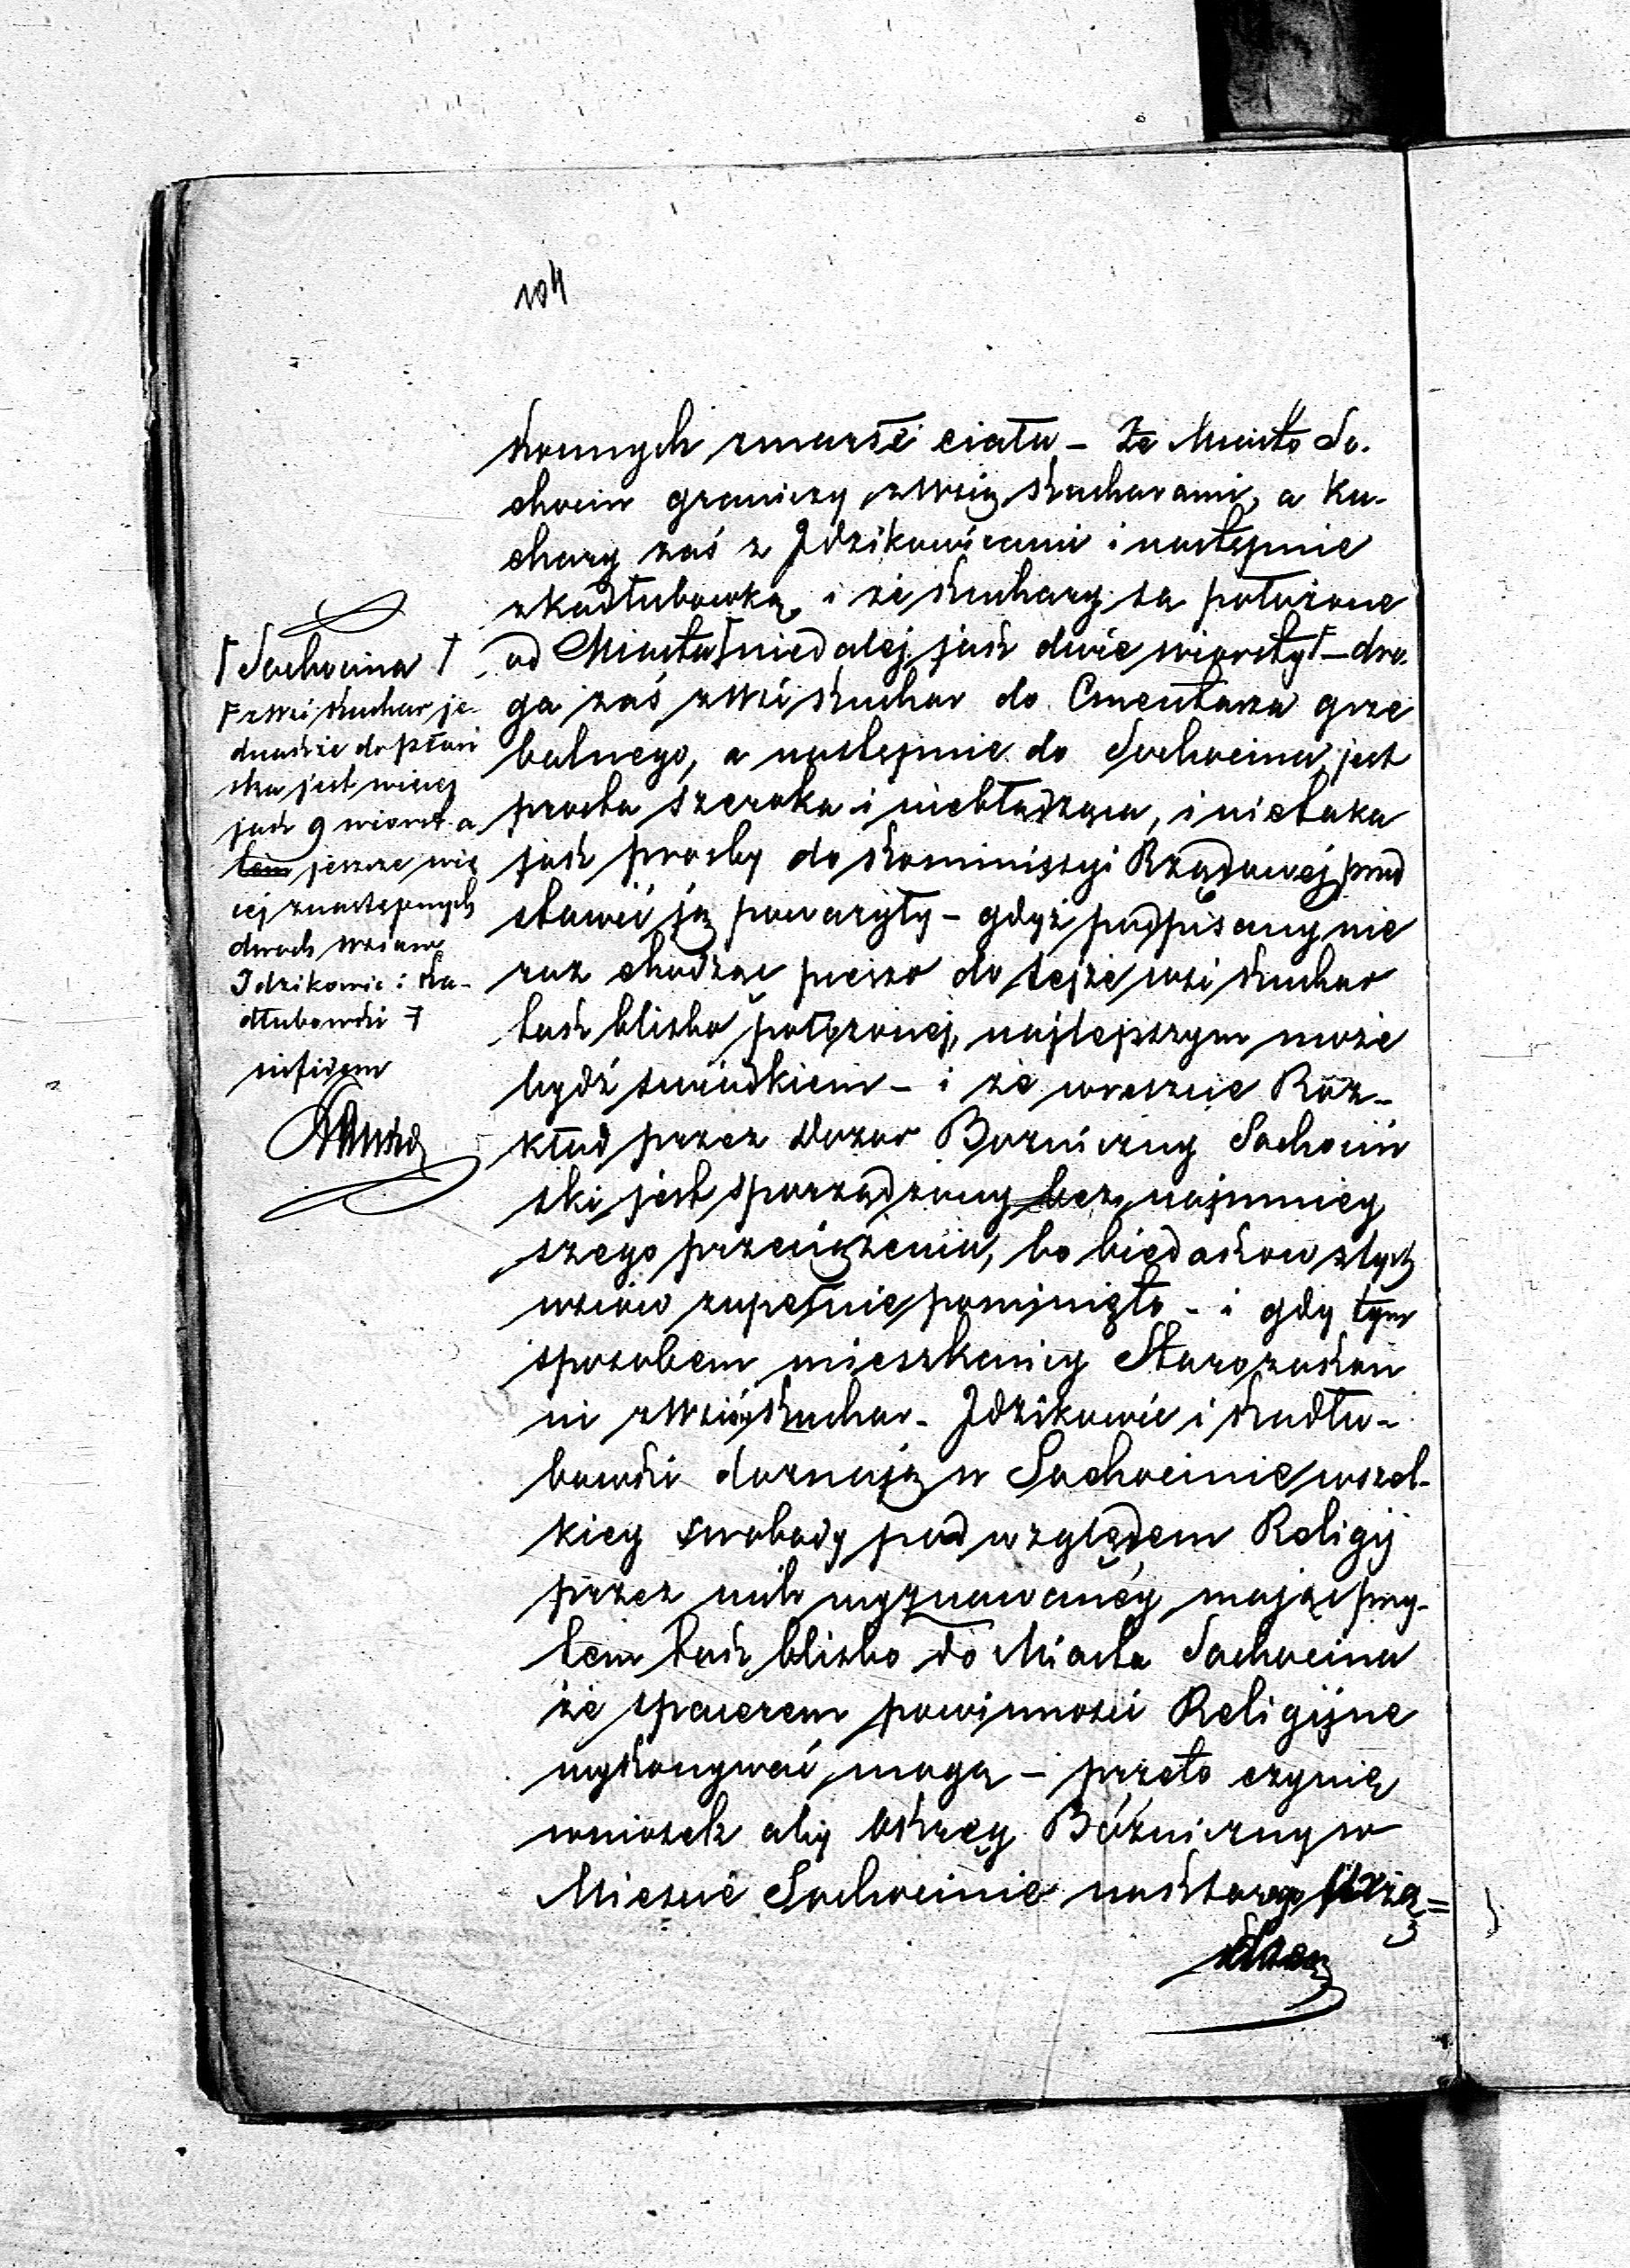 104
konnych zmarłe ciała – że Miasto So-
chocin graniczy z Wsią Kucharami, a Ku-
chary zaś z Idzikowicami i następnie
z Kadłubowką, i że Kuchary są położone
od Miasta niedalej jak dwie wiorsty – dro-
ga zaś z Wsi Kuchar do Cmentarza grze
balnego, a następnie do Sochocina jest
prosta szeroka i niebłądząca, i nie taka
jak prośby do Kommissyi Rządowej przed
stawić ją poważyły – gdyż podpisany nie
raz chodząc pieszo do tejże wsi Kuchar
tak blisko położonej, najlepszym może
bydź świadkiem – i że wreszcie Roz-
kład przez Dozor Bozniczny Sochociń
ski jest sporządzony bez najmniey
szego przeciążenia, bo biedakow z tych
wsiow zupełnie pominięto – i gdy tym
sposobem mieszkańcy Starozakon
ni z Wsiów Kuchar – Idzikowic i Kadłu-
bowki doznają w Sochocinie wszel-
kiey swobody pod względem Religij
przez nich wyznawanéy, mając przy-
tem tak blisko do Miasta Sochocina
że spacerem powinności Religijne
wykonywać mogą – przeto czynię
wniosek aby Okręg Bóźniczny w
Miescie Sochocinie na
Sochocina
z Wsi Kuchar je-
dnakże do Płoń
ska jest więcej
jak 9 wiorst a
tem jeszcze wię
cej z następnych
dwoch wsiow
Idzikowic i Ka-
dłubowki
in fidem